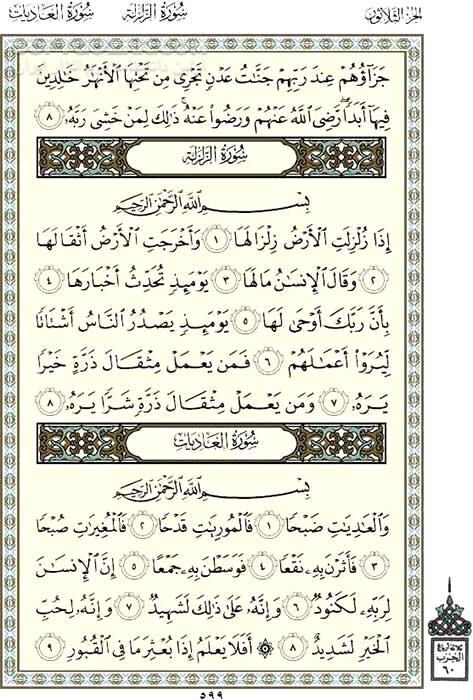 الجزء الثلاثون سورة الزلزلة سورة العاديات
جَزَآؤُهُمْ عِندَ رَبِّهِمْ جَنَّٰتُ عَدْنٍ تَجْرِى مِن تَحْتِهَا ٱلْأَنْهَٰرُ خَٰلِدِينَ
فِيهَآ أَبَدًا ۖ رَّضِىَ ٱللَّهُ عَنْهُمْ وَرَضُوا۟ عَنْهُ ۚ ذَٰلِكَ لِمَنْ خَشِىَ رَبَّهُۥ ٨
سُورَةُ الزَّلْزَلَةِ
بِسْمِ ٱللَّهِ ٱلرَّحْمَٰنِ ٱلرَّحِيمِ
إِذَا زُلْزِلَتِ ٱلْأَرْضُ زِلْزَالَهَا ١ وَأَخْرَجَتِ ٱلْأَرْضُ أَثْقَالَهَا
٢ وَقَالَ ٱلْإِنسَٰنُ مَا لَهَا ٣ يَوْمَئِذٍ تُحَدِّثُ أَخْبَارَهَا ٤
بِأَنَّ رَبَّكَ أَوْحَىٰ لَهَا ٥ يَوْمَئِذٍ يَصْدُرُ ٱلنَّاسُ أَشْتَاتًا
لِّيُرَوْا۟ أَعْمَٰلَهُمْ ٦ فَمَن يَعْمَلْ مِثْقَالَ ذَرَّةٍ خَيْرًا
يَرَهُۥ ٧ وَمَن يَعْمَلْ مِثْقَالَ ذَرَّةٍ شَرًّا يَرَهُۥ ٨
سُورَةُ العَادِيَاتِ
بِسْمِ ٱللَّهِ ٱلرَّحْمَٰنِ ٱلرَّحِيمِ
وَٱلْعَٰدِيَٰتِ ضَبْحًا ١ فَٱلْمُورِيَٰتِ قَدْحًا ٢ فَٱلْمُغِيرَٰتِ صُبْحًا
٣ فَأَثَرْنَ بِهِۦ نَقْعًا ٤ فَوَسَطْنَ بِهِۦ جَمْعًا ٥ إِنَّ ٱلْإِنسَٰنَ
لِرَبِّهِۦ لَكَنُودٌ ٦ وَإِنَّهُۥ عَلَىٰ ذَٰلِكَ لَشَهِيدٌ ٧ وَإِنَّهُۥ لِحُبِّ
ٱلْخَيْرِ لَشَدِيدٌ ٨ ۞ أَفَلَا يَعْلَمُ إِذَا بُعْثِرَ مَا فِى ٱلْقُبُورِ ٩
ثلاثة أرباع
الحزب
٦٠
٥٩٩